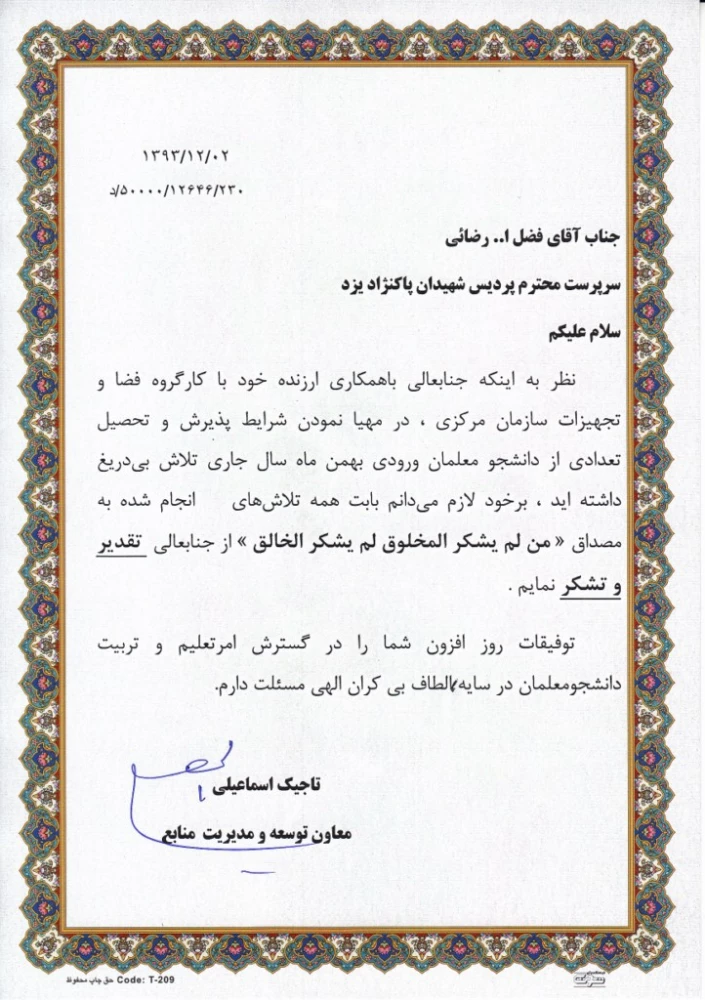 ۱۳۹۳/۱۲/۰۲
د/۵۰۰۰۰/۱۲۶۴۶/۲۳۰
جناب آقای فضل ا.. رضائی
سرپرست محترم پردیس شهیدان پاکنژاد یزد
سلام علیکم
نظر به اینکه جنابعالی باهمکاری ارزنده خود با کارگروه فضا و
تجهیزات سازمان مرکزی ، در مهیا نمودن شرایط پذیرش و تحصیل
تعدادی از دانشجو معلمان ورودی بهمن ماه سال جاری تلاش بی‌دریغ
داشته اید ، برخود لازم می‌دانم بابت همه تلاش‌های انجام شده به
مصداق « من لم یشکر المخلوق لم یشکر الخالق » از جنابعالی تقدیر
و تشکر نمایم .
توفیقات روز افزون شما را در گسترش امرتعلیم و تربیت
دانشجومعلمان در سایه الطاف بی کران الهی مسئلت دارم.
تاجیک اسماعیلی
معاون توسعه و مدیریت منابع
Code: T-209 حق چاپ محفوظ